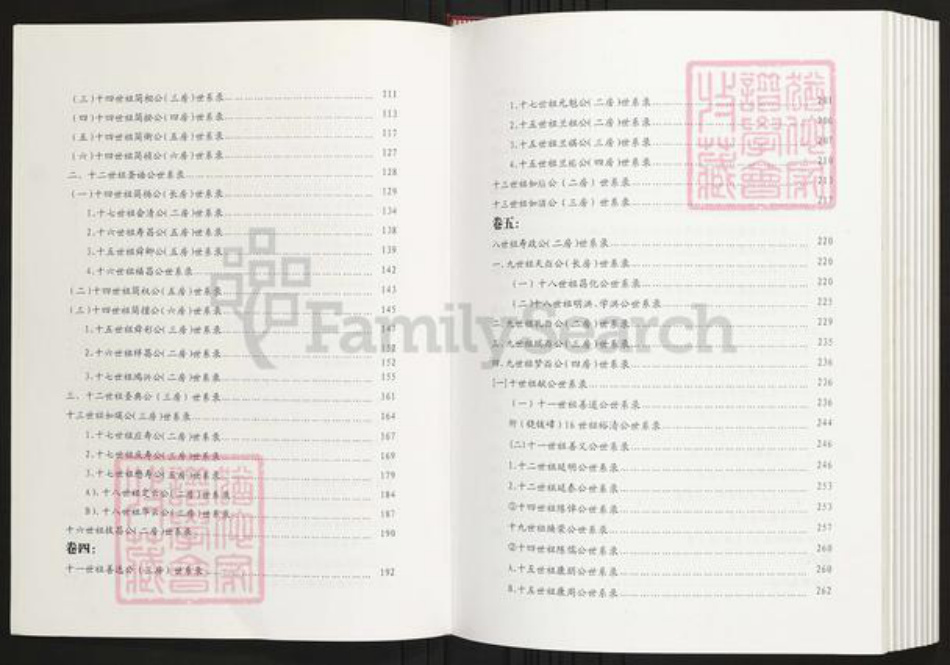 (三)十四世祖简相公(三房)世系录 211
(四)十四世祖简 公(四房)世系录 113
(五)十四世祖简衡公(五房)世系录 117
(六)十四世祖简 公(六房)世系录 127
二、十二世祖 公世系录 128
(一)十四世祖简杨公(长房)世系录 129
1.十七世祖会清公(二房)世系录 134
2.十六世祖寿昌公(五房)世系录 138
3.十五世祖舜卿公(五房)世系录 139
4.十六世祖福昌公世系录 142
(二)十四世祖简权公(五房)世系录 143
(三)十四世祖简 公(六房)世系录 145
1.十五世祖舜彩公(三房)世系录
2.十六世祖祥昌公(二房)世系录 152
152
3.十七世祖鸿 公(二房)世系录 155
三、十二世祖 典公(三房)世系录 161
十三世祖如瑛公(三房)世系录 164
1.十七世祖应寿公(二房)世系录 167
2.十七世祖庆寿公(三房)世系录 169
3.十七世祖 寿公(五房)世系录 179
A).十八世祖定 公(二房)世系录 184
B).十八世祖华 公(三房)世系录 187
十六世祖 昌公(二房)世系录 190
卷四:
十一世祖善达公(三房)世系录 192
1.十七世祖光魁公(二房)世系录 201
2.十五世祖兰 公(二房)世系录 206
3.十五世祖兰 公(三房)世系录 207
4.十五世祖兰 公(四房)世系录 210
十三世祖如 公(二房)世系录 213
十三世祖如 公(三房)世系录 217
卷五:
八世祖寿政公(二房)世系录 220
一.九世祖天 公(长房)世系录 220
(一)十八世祖昌化公世系录 220
(二)十八世祖明洪、学洪公世系录 225
二.九世祖孔 公(二房)世系录 229
三.九世祖 公(三房)世系录 235
四.九世祖梦 公(四房)世系录 236
[一]十世祖献公世系录 236
(一)十一世祖善道公世系录 236
附( 钱峰)16世祖裕清公世系录 244
(二)十一世祖善义公世系录 246
1.十二世祖廷明公世系录 246
2.十二世祖廷泰公世系录 253
①十四世祖陈 公世系录 253
十九世祖焕荣公世系录 257
②十四世祖陈儒公世系录 260
A.十五世祖康朝公世系录 260
B.十五世祖康周公世系录 262
FamilySearch